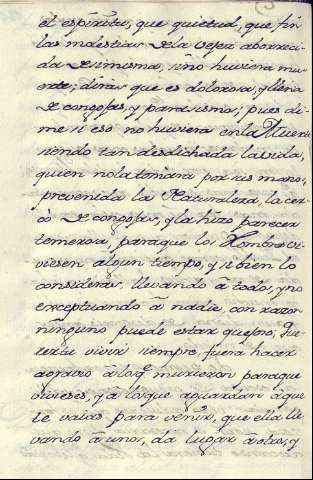 el espiritu, que quietud, que fin
las molestias de la vejez aborreci-
da de si misma, sino huviera mu-
erte; diràs que es dolorosa, y llena
de congojas, y parasismos; pues di-
me si eso no huviera en la Muerte
siendo tan desdichada la vida,
quien no la tomàra por sus manos
prevenida la Naturaleza, la cer-
cò de congojas, y la hizo parecer
temerosa, para que los Hombres vi-
viesen algun tiempo, y si bien lo
consideras, llevando à todos, y no
exceptuando à nadie, con razon
ninguno puede estar quejoso; Que-
rer tu vivir siempre, fuera hacer
agravio à los q̃ murieron para que
vivieses, y à los que aguardan à que
te vaias para venir, que ella lle-
vando à unos, da lugar à otros, y